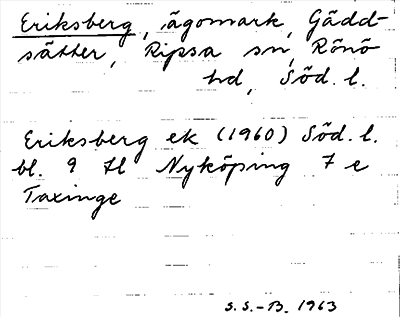 Eriksberg, ägomark, Gädd-
sätter, Ripsa sn, Rönö
hd, Söd. l.
Eriksberg ek (1960) Söd. l.
bl. 9 H Nyköping 7 e
Taxinge
S.S.-B. 1963